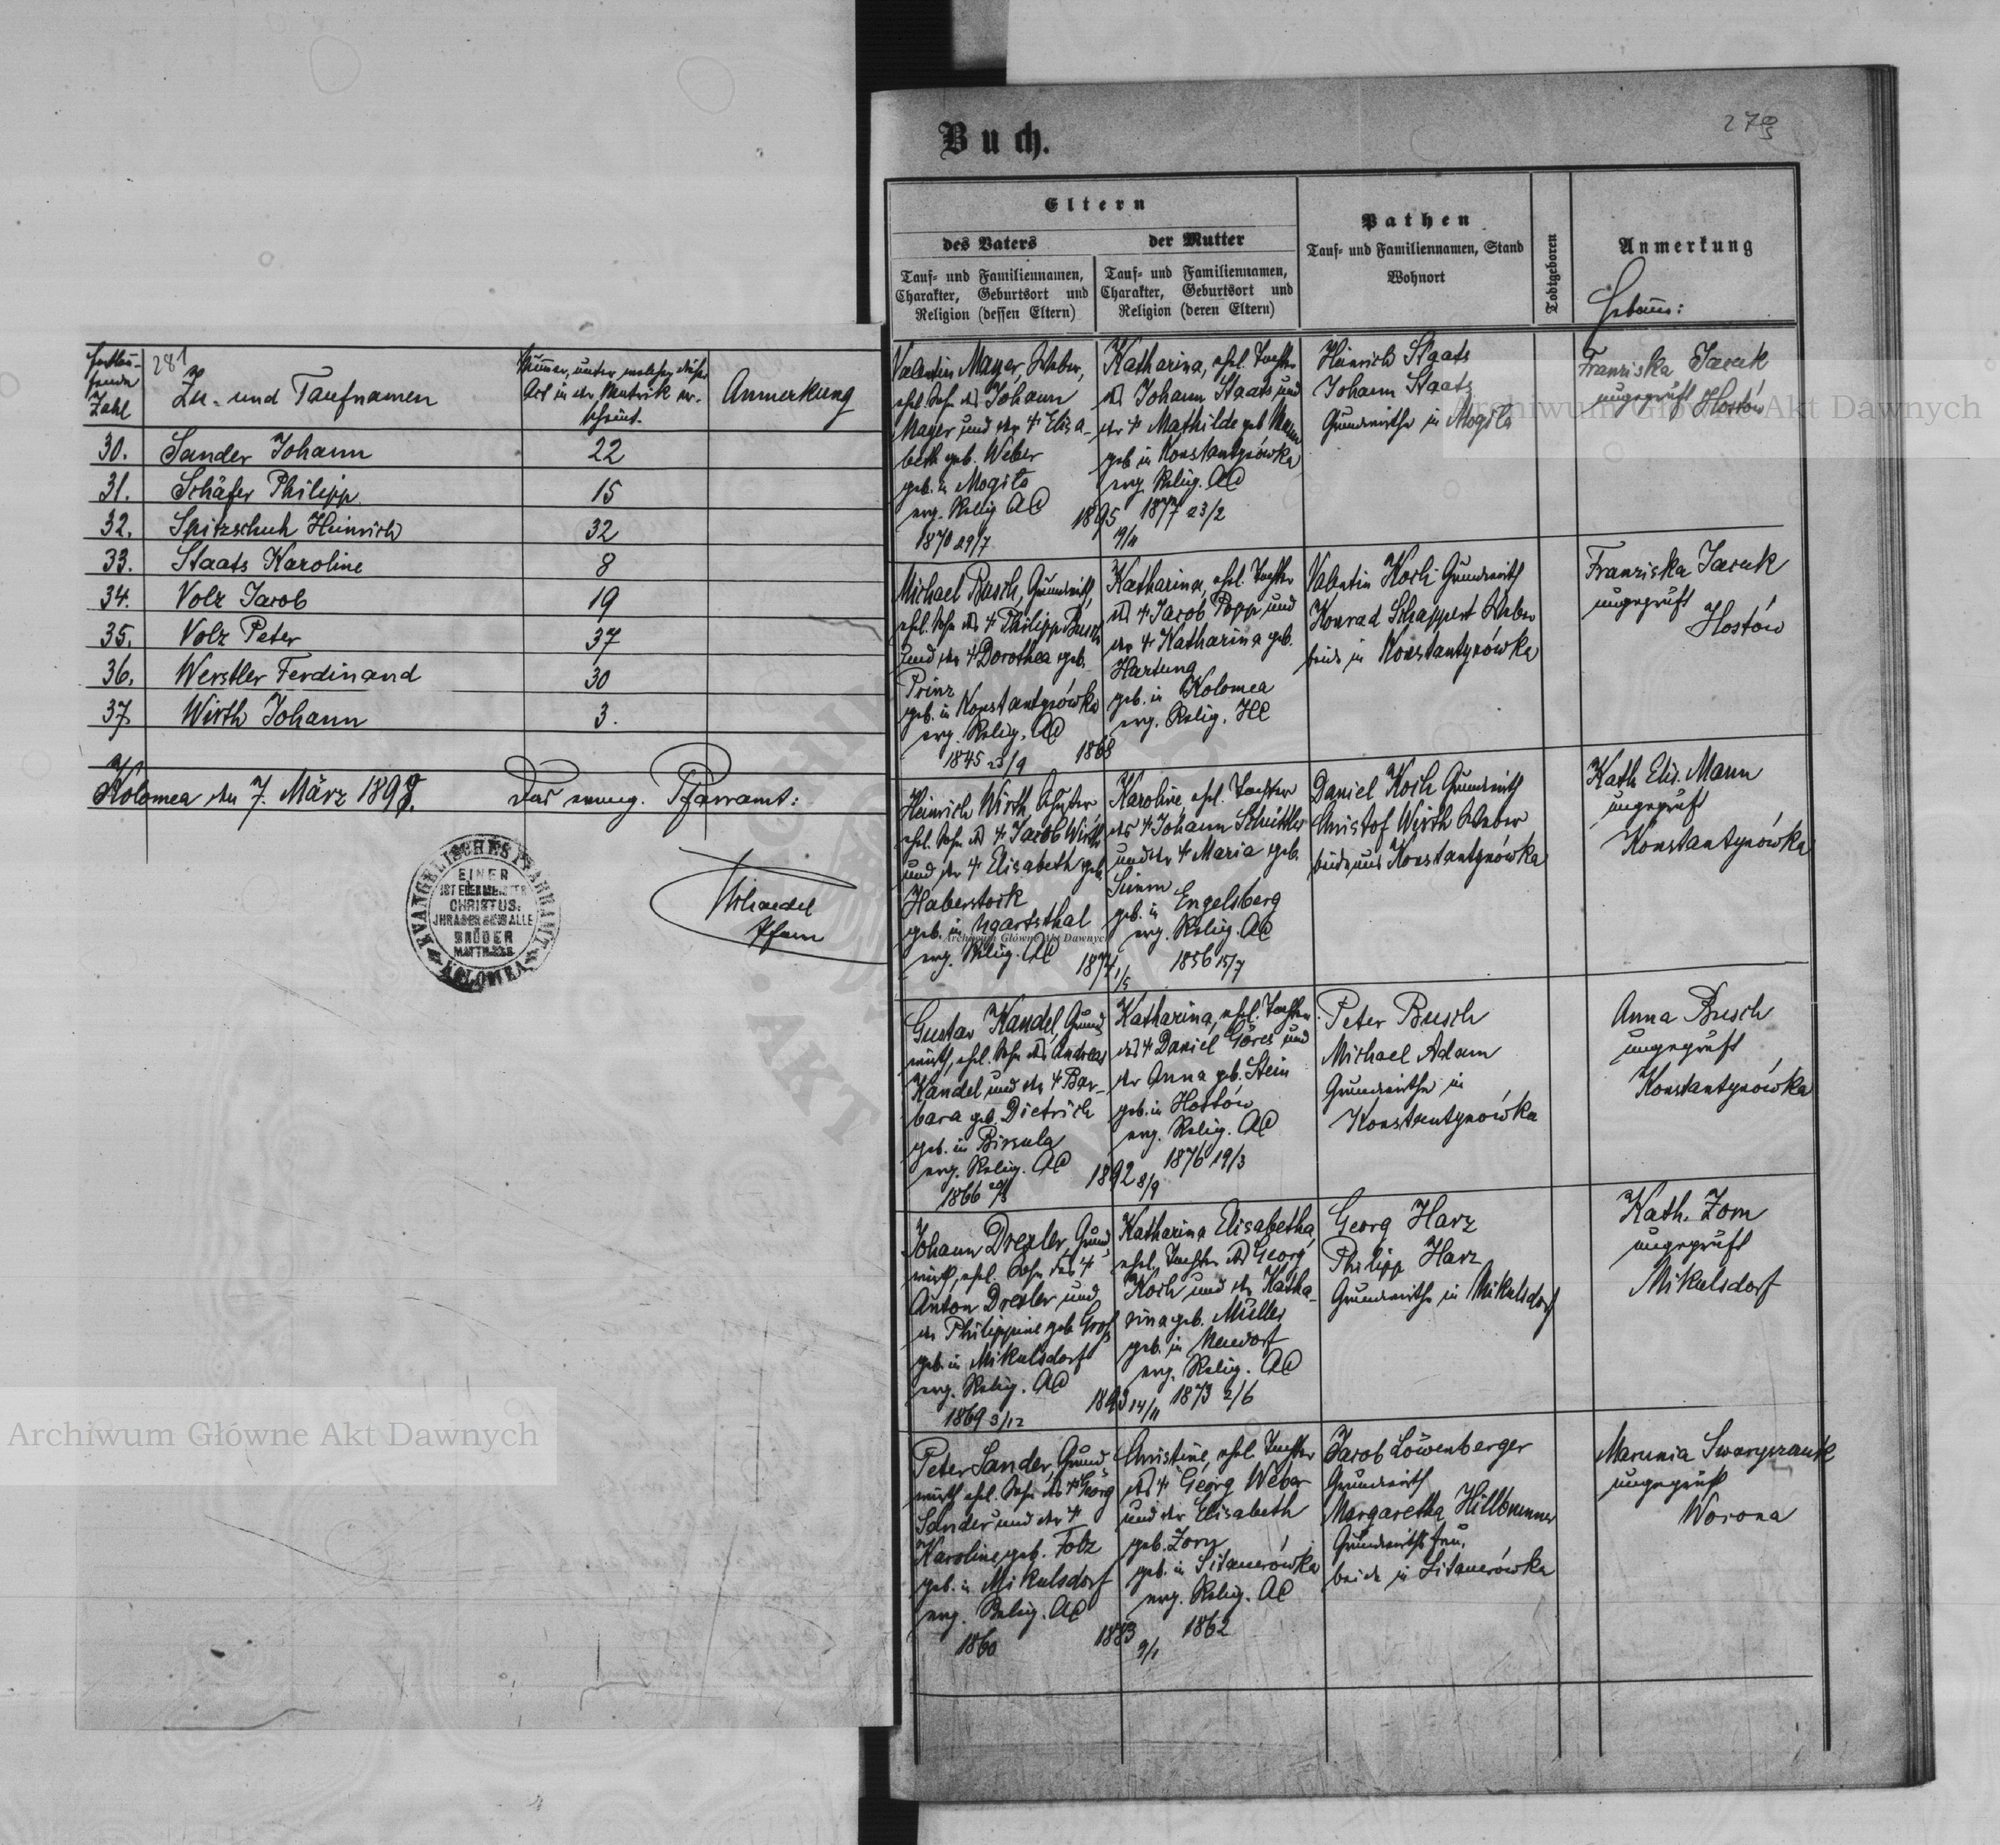 281
Fortlau-
fende
Zahl
Zu- und Taufnamen
Nummer, unter welcher dieser
Act in der Matrik er-
scheint.
Anmerkung
30. Sander Johann 22
31. Schäfer Philipp 15
32. Spitzschuh Heinrich 32
33. Staats Karoline 8
34. Volz Jacob 19
35. Volz Peter 37
36. Werstler Ferdinand 30
37. Wirth Johann 3.
Kolomea den 7. März 1898.
Das evang. Pfarramt:
EVANGELISCHES PFARRAMT
KOLOMEA
EINER
IST EUER MEISTER
CHRISTUS:
IHR ABER SEID ALLE
BRÜDER
MATTH.
Buch.
Eltern
des Vaters
Tauf- und Familiennamen,
Charakter, Geburtsort und
Religion (dessen Eltern)
der Mutter
Tauf- und Familiennamen,
Charakter, Geburtsort und
Religion (deren Eltern)
Pathen
Tauf- und Familiennamen, Stand
Wohnort
Todtgeboren
Anmerkung
Hebamme:
Valentin Mayer, Weber,
ehel. Sohn des Johann
Mayer und der † Elisa-
beth geb. Weber
geb. in Mogiła
evg. Relig. AC
1870 29/7
1895
Katharina, ehel. Tochter
des Johann Staats und
der † Mathilde geb.
geb. in Konstantynówka
evg. Relig. AC
1877 23/2
Heinrich Staats
Johann Staats
Grundwirthe in Mogiła
Franziska Jacuk
ungeprüft
Hostów
Michael Busch, Grundwirth,
ehel. Sohn des † Philipp Busch
und der † Dorothea geb.
Prinz
geb. in Konstantynówka
evg. Relig. AC
1845
1868
Katharina, ehel. Tochter
des † Jacob Popp und
der † Katharina geb.
Hartung
geb. in Kolomea
evg. Relig. HC
Valentin Koch Grundwirth
Konrad Schappert Weber
beide in Konstantynówka
Franziska Jacuk
ungeprüft
Hostów
Heinrich Wirth
ehel. Sohn des † Jacob Wirth
und der † Elisabeth geb.
Haberstock
geb. in Ugartsthal
evg. Relig. AC
Karoline, ehel. Tochter
des † Johann Schüttler
und der † Maria geb.
geb. in Engelsberg
evg. Relig. AC
1856 15/7
Daniel Koch Grundwirth
Christof Wirth Weber
beide aus Konstantynówka
Kath. Elis. Mann
ungeprüft
Konstantynówka
Gustav Kandel, Grund-
wirth, ehel. Sohn des Andreas
Kandel und der † Bar-
bara geb. Dietrich
geb. in Birsula
evg. Relig. AC
1866
1892 8/9
Katharina, ehel. Tochter
des † Daniel Göres und
der Anna geb. Stein
geb. in Hostów
evg. Relig. AC
1876 19/3
Peter Busch
Michael Adam
Grundwirthe in
Konstantynówka
Anna Busch
ungeprüft
Konstantynówka
Johann Drexler, Grund-
wirth, ehel. Sohn des †
Anton Drexler und
der Philippine geb. Groß
geb. in Mikulsdorf
evg. Relig. AC
1869 3/12
1893 14/11
Katharina Elisabetha,
ehel. Tochter des Georg
Koch und der Katha-
rina geb. Müller
geb. in Neudorf
evg. Relig. AC
1873 2/6
Georg Harz
Philipp Harz
Grundwirthe in Mikulsdorf
Kath. Zorn
ungeprüft
Mikulsdorf
Peter Sander, Grund-
wirth, ehel. Sohn des † Georg
Sander und der †
Karoline geb. Folz
geb. in Mikulsdorf
evg. Relig. AC
1860
1883 9/1
Christine, ehel. Tochter
des † Georg Weber
und der Elisabeth
geb. Zorn
geb. in Sitauerówka
evg. Relig. AC
1862
Jacob Löwenberger
Grundwirth
Margaretha Hillbrunner
Grundwirthsfrau,
beide in Sitauerówka
Marunia
ungeprüft
Worona
Archiwum Główne Akt Dawnych
Archiwum Główne Akt Dawnych
Archiwum Główne Akt Dawnych